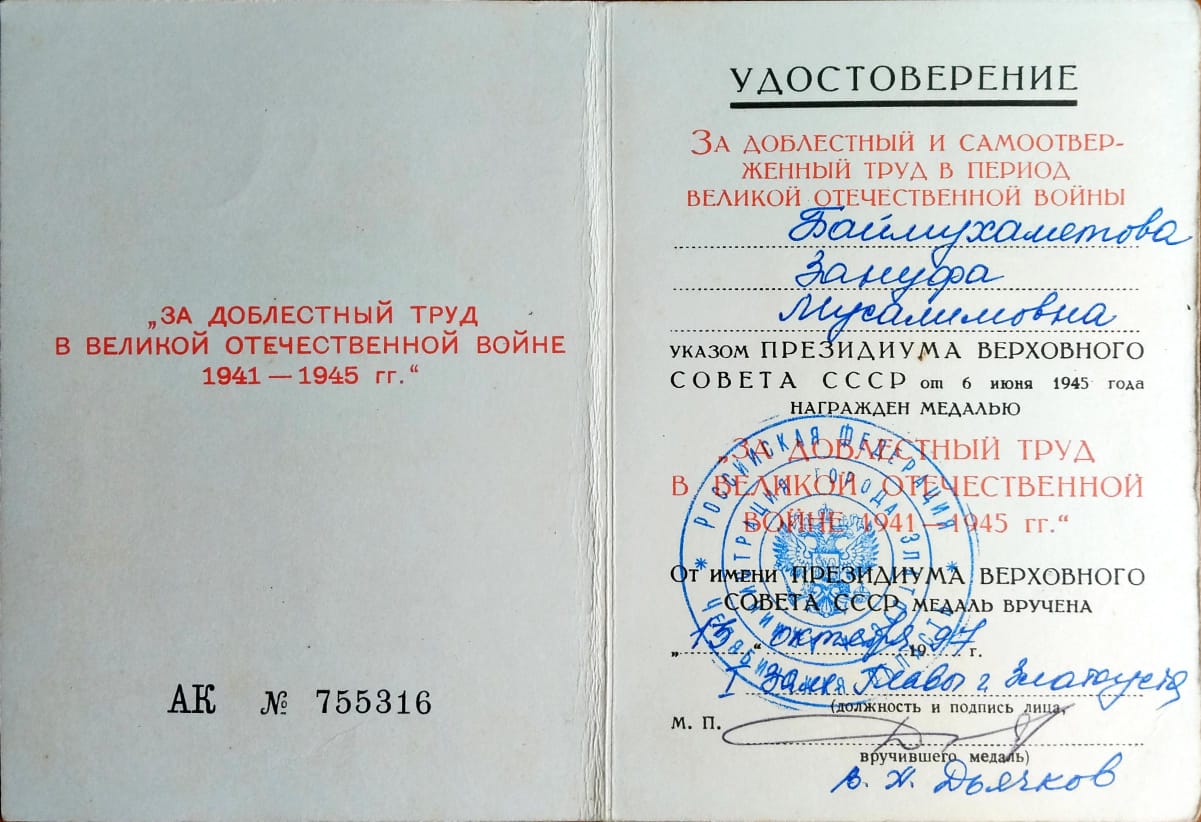 „ЗА ДОБЛЕСТНЫЙ ТРУД
В ВЕЛИКОЙ ОТЕЧЕСТВЕННОЙ ВОЙНЕ
1941—1945 гг.“
АК № 755316
УДОСТОВЕРЕНИЕ
ЗА ДОБЛЕСТНЫЙ И САМООТВЕР-
ЖЕННЫЙ ТРУД В ПЕРИОД
ВЕЛИКОЙ ОТЕЧЕСТВЕННОЙ ВОЙНЫ
Баймухаметова
Зануфа
Мусалимовна
УКАЗОМ ПРЕЗИДИУМА ВЕРХОВНОГО
СОВЕТА СССР от 6 июня 1945 года
НАГРАЖДЕН МЕДАЛЬЮ
„ЗА ДОБЛЕСТНЫЙ ТРУД
В ВЕЛИКОЙ ОТЕЧЕСТВЕННОЙ
ВОЙНЕ 1941—1945 гг.“
От имени ПРЕЗИДИУМА ВЕРХОВНОГО
СОВЕТА СССР МЕДАЛЬ ВРУЧЕНА
„15“ октября 1997 г.
I Зам. Главы г. Златоуста
(должность и подпись лица,
М. П.
вручившего медаль)
В. Н. Дьячков
РОССИЙСКАЯ ФЕДЕРАЦИЯ
ЧЕЛЯБИНСКАЯ ОБЛАСТЬ